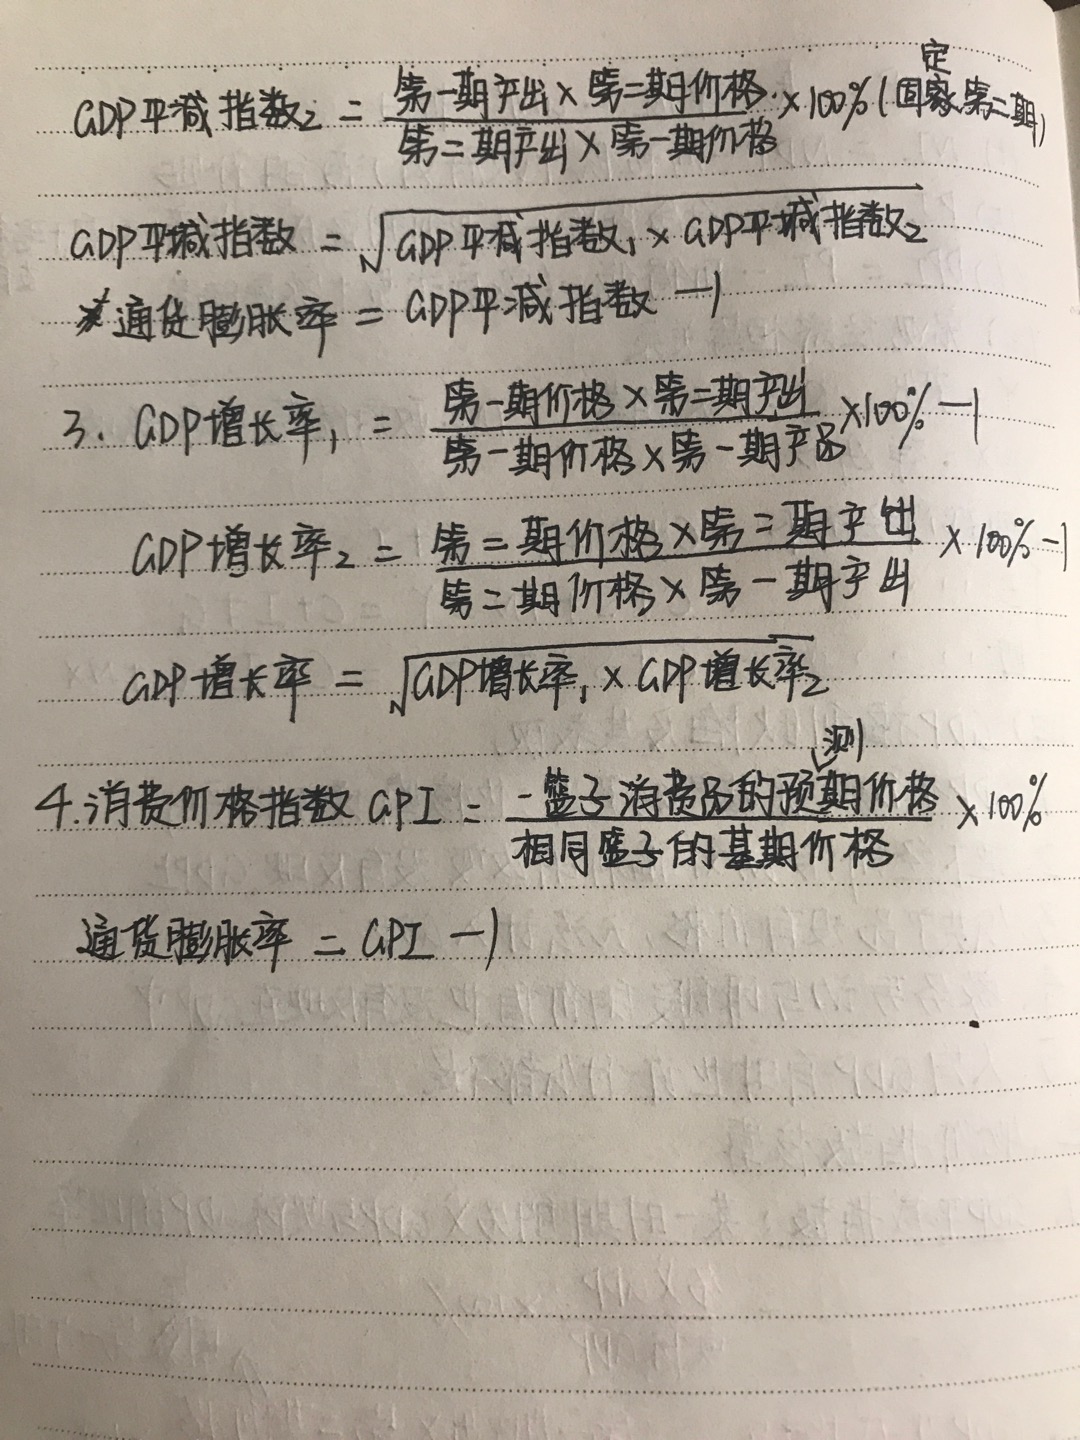 GDP平减指数₂ = 第一期产出×第二期价格 / 第二期产出×第一期价格 ×100% (固定 第二期)
GDP平减指数 = √GDP平减指数₁ × GDP平减指数₂
*通货膨胀率 = GDP平减指数 -1
3. GDP增长率₁ = 第一期价格×第二期产出 / 第一期价格×第一期产品 ×100% -1
GDP增长率₂ = 第二期价格×第二期产出 / 第二期价格×第一期产出 ×100% -1
GDP增长率 = √GDP增长率₁ × GDP增长率₂
测
4.消费价格指数 CPI = 一篮子消费品的预期价格 / 相同篮子的基期价格 ×100%
通货膨胀率 = CPI -1